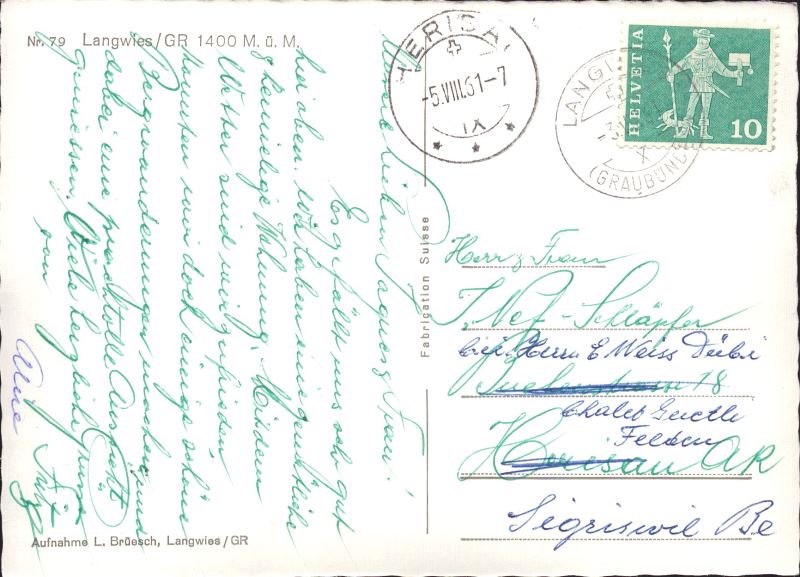 Nr. 79 Langwies/GR 1400 M. ü. M.
Meine lieben Jaques & Frau!
Es gefällt uns sehr gut
hier oben. Wir haben eine gemütliche
heimelige Wohnung. Mit dem
Wetter sind wir zufrieden
konnten wir doch einige schöne
Bergwanderungen machen und
dabei eine prachtvolle Aussicht
geniessen. Viele herzliche Grüsse
von
Fabrication Suisse
HERISAU
-5.VIII.61-7
IX
LANGWIES
X
(GRAUBÜNDEN)
HELVETIA
10
Herr & Frau
J. Nef-Schläpfer
bei Herrn E. Weiss
18
Chalet
Herisau AR
Sigriswil Be
Aufnahme L. Brüesch, Langwies/GR